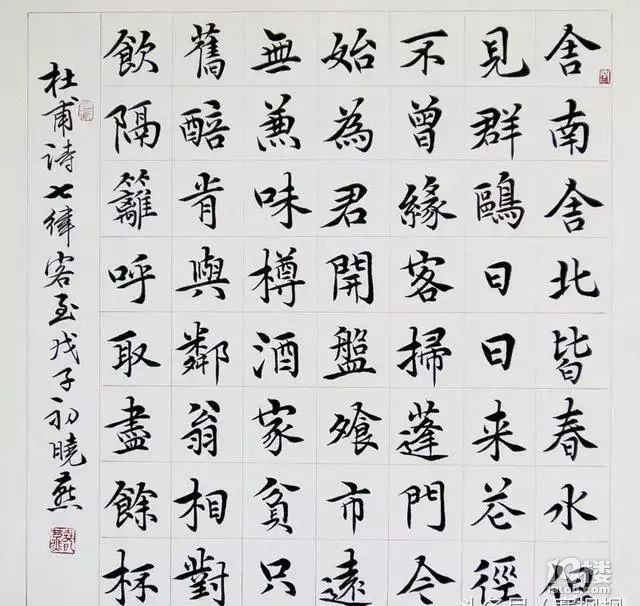 舍南舍北皆春水但
見群鷗日日来花徑
不曾緣客掃蓬門今
始為君開盤飧市遠
無兼味樽酒家貧只
舊醅肯與鄰翁相對
飲隔籬呼取盡餘杯
杜甫诗七律客至戊子初曉燕